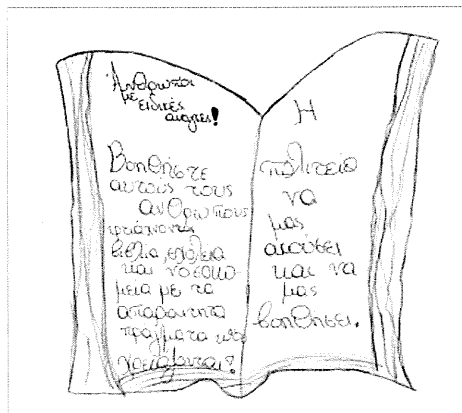 Άνθρωποι
με
ειδικές
ανάγκες!
Βοηθήστε
αυτούς τους
ανθρώπους
φτιάχνοντας
βιβλία, σχολεία
και νοσοκο-
μεία με τα
απαραίτητα
πράγματα που
χρειάζονται!
Η
πολιτεία
να
μας
ακούσει
και να
μας
βοηθήσει.